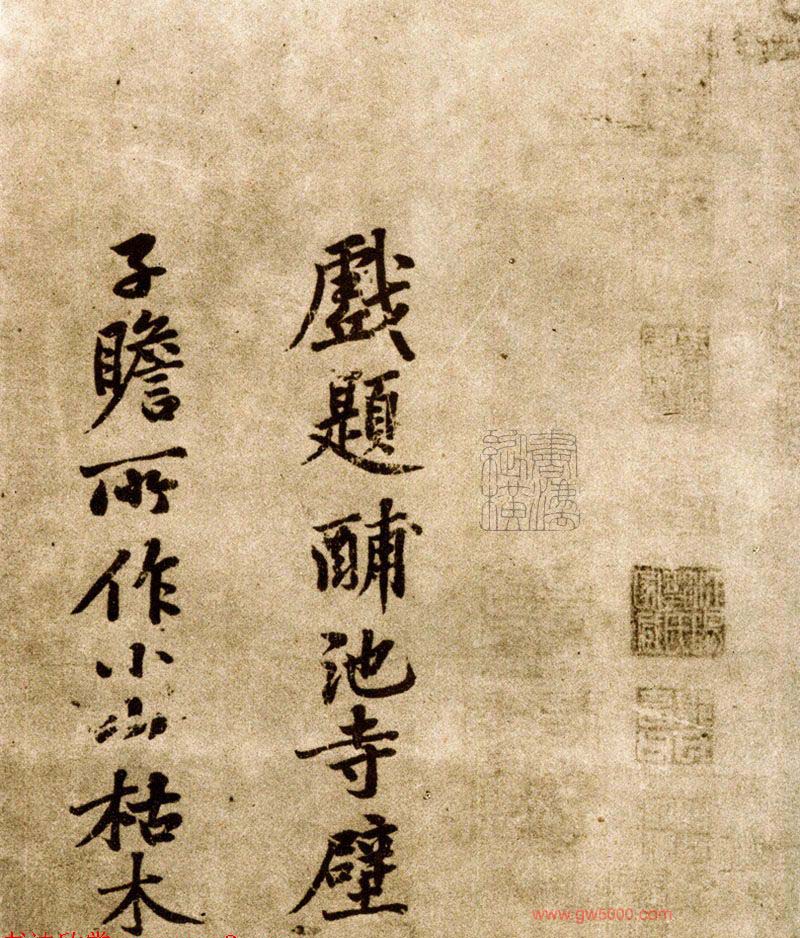 戲題酺池寺壁
子瞻所作小山枯木
書法欣赏
www.gw5000.com